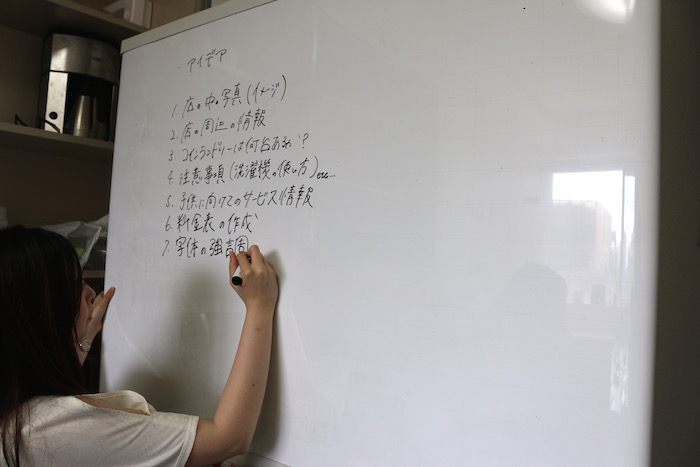 ・アイデア
1. 店の中の写真(イメージ)
2. 店の周辺の情報
3. コインランドリーは何台あるか?
4. 注意事項(洗濯機の使い方)etc...
5. 子供に向けてのサービス情報
6. 料金表の作成
7. 字体の強調